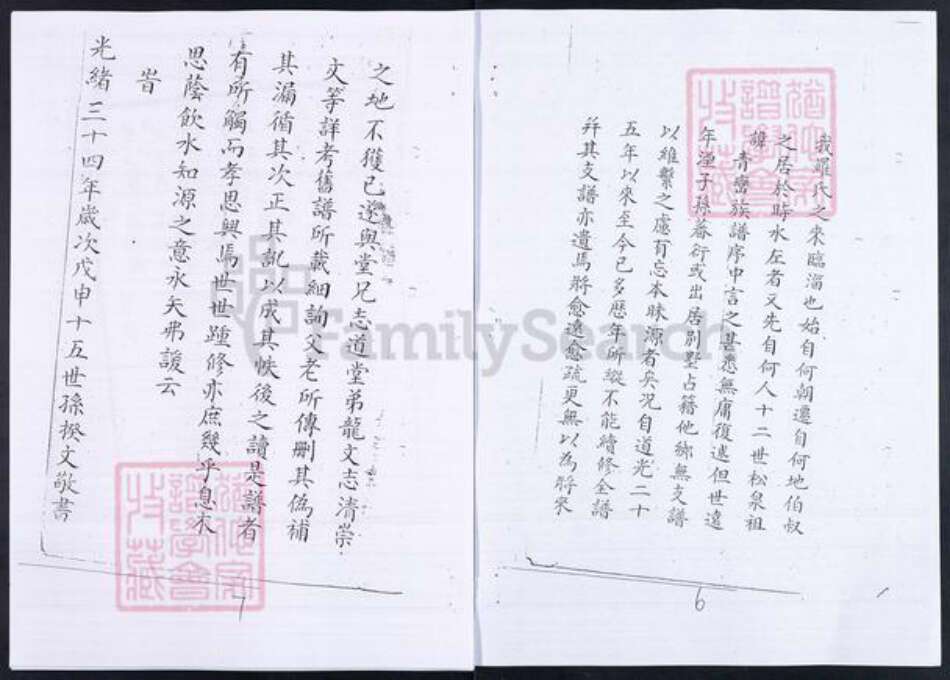 我羅氏之來臨淄也始自何朝遷自何地伯叔
之居於時水左者又先自何人十二世松泉祖
諱青巒族譜序中言之甚悉無庸復述但世遠
年湮子孫蕃衍或出居別墅占籍他鄉無支譜
以維繫之慮有忘本昧源者矣況自道光二十
五年以來至今已多歷年所縱不能續修全譜
幷其支譜亦遺焉將愈遠愈疏更無以為將來
6
之地不獲已遂與堂兄志道堂弟龍文志清崇
文等詳考舊譜所載細詢父老所傳刪其偽補
其漏循其次正其訛以成其帙後之讀是譜者
有所觸而孝思興焉世世踵修亦庶幾乎息木
思蔭飲水知源之意永矢弗諼云
旹
光緒三十四年歲次戊申十五世孫揆文敬書
7
FamilySearch